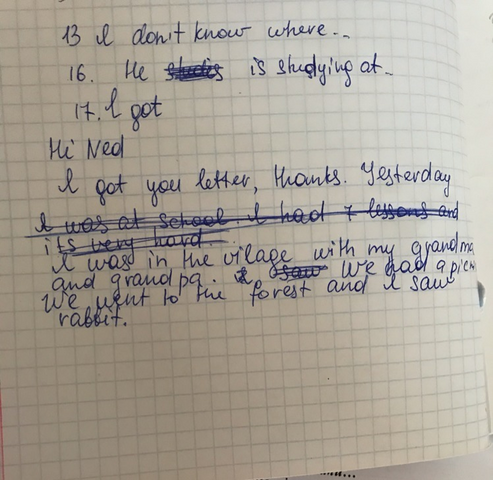 13 I don't know where...
16. He studies is studying at...
17. I got
Hi Ned
I got you letter, thanks. Yesterday
I was at school. I had 7 lessons and
its very hard.
I was in the vilage with my grandma
and grandpa. I saw We had a picn
We went to the forest and I saw
rabbit.